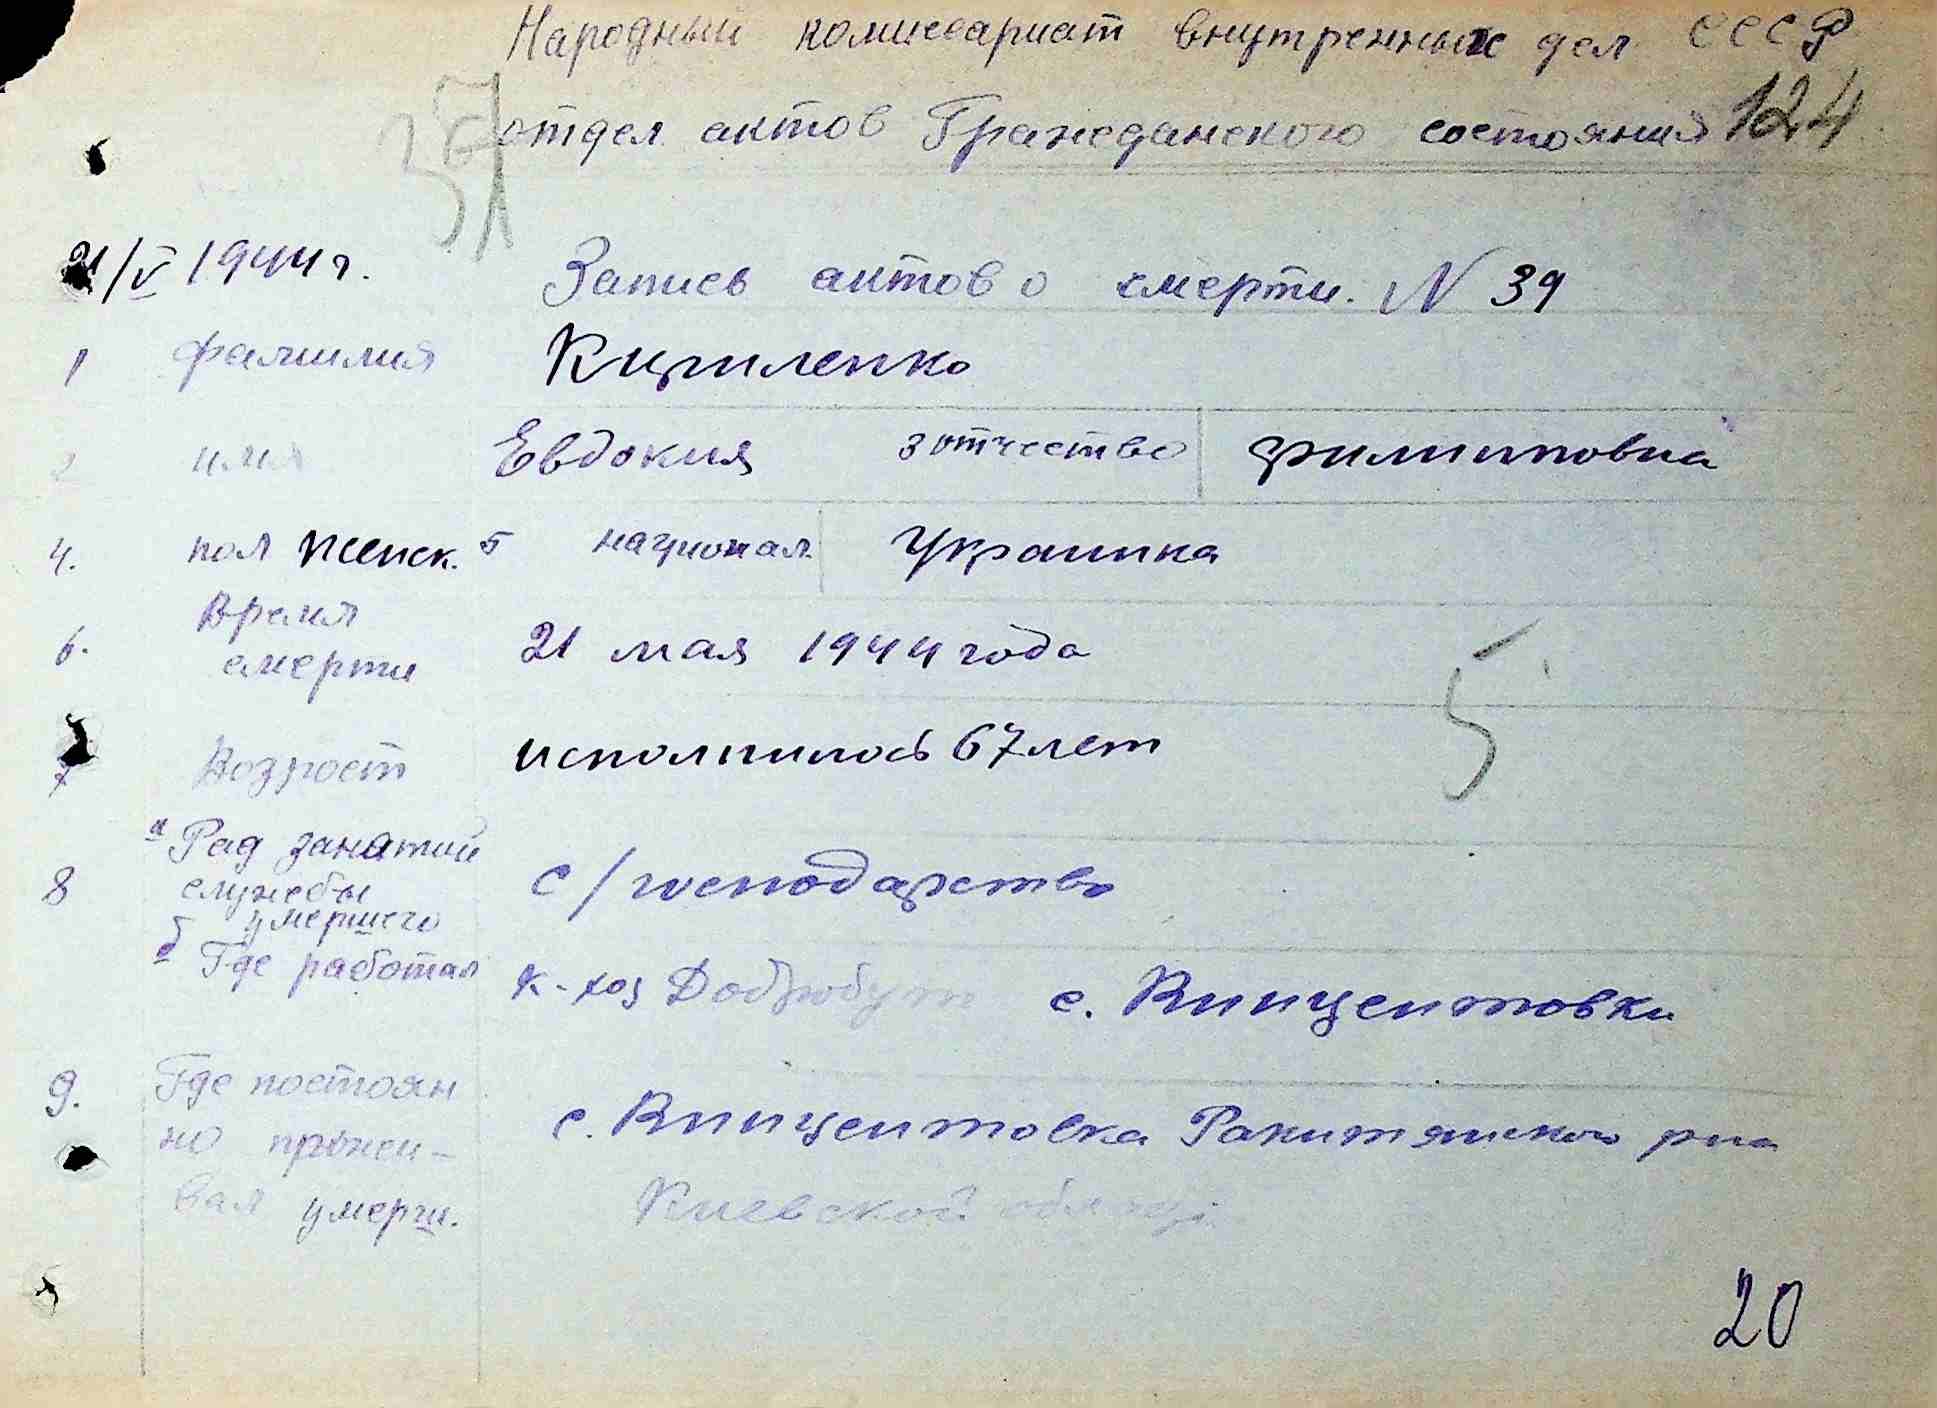 Народный комиссариат внутренных дел СССР
отдел актов Гражданского состояния 124
21/V 1944 г. Запись актов о смерти. N 39
1 фамилия Кириленко
2 имя Евдокия 3 отчество Филиповна
4. пол женск. 5 национал Украинка
6. Время смерти 21 мая 1944 года
7 Возрост исполнилось 67 лет
5
а Рад занятий
8 службы с/господарство
умершего
б Где работал к-хоз Добробут с. Винцентовки
9. Где постоян с. Винцентовка Ракитянского рна
но прожи-
вал умерш. Киевской области
20